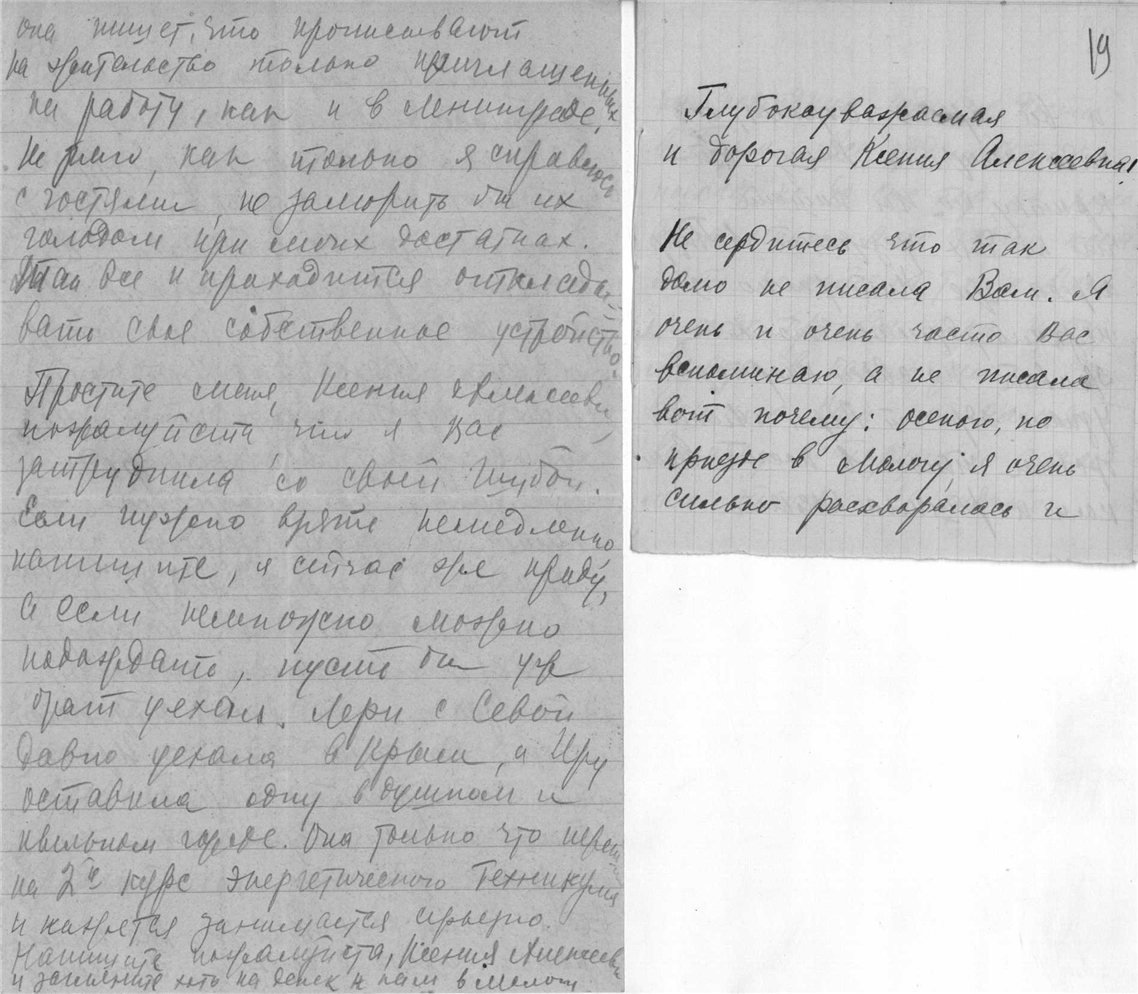 она пишет, что прописывают
на жительство только приглашенных
на работу, как и в Ленинграде.
Не знаю, как только я справлюсь
с гостями, не заморить бы их
голодом при моих достатках.
Так все и приходится отклады-
вать свое собственное устройство.
Простите меня, Ксения Алексеевн
пожалуйста что я Вас
затруднила со своей шубой.
Если нужно вряте немедленно
напишите, я сейчас же приду,
а если немножко можно
подождать, пусть бы уж
брат уехал. Лери с Севой
давно уехала в Крым, а Иру
оставила одну в душном и
пыльном городе. Она только что переш
на 2й курс Энергетического Техникума
и кажется занимается серьезно.
Напишите пожалуйста, Ксения Алексеевн
и загляните хоть на денек к нам в Мологу.
19
Глубокоуважаемая
и дорогая Ксения Алексеевна!
Не сердитесь что так
давно не писала Вам. Я
очень и очень часто Вас
вспоминаю, а не писала
вот почему: осенью, по
приезде в Мологу я очень
сильно расхворалась и